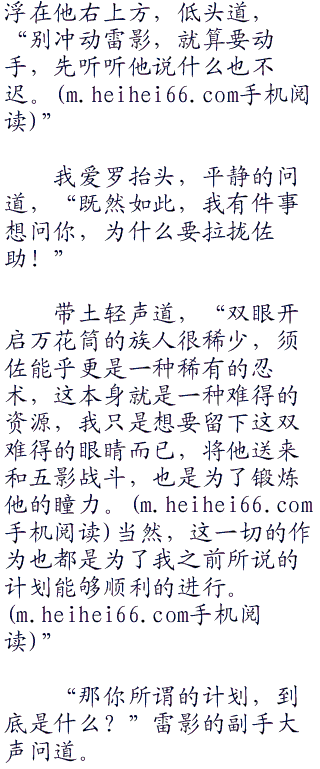 浮在他右上方，低头道，
“别冲动雷影，就算要动
手，先听听他说什么也不
迟。(m.heihei66.com手机阅
读)”
我爱罗抬头，平静的问
道，“既然如此，我有件事
想问你，为什么要拉拢佐
助！”
带土轻声道，“双眼开
启万花筒的族人很稀少，须
佐能乎更是一种稀有的忍
术，这本身就是一种难得的
资源，我只是想要留下这双
难得的眼睛而已，将他送来
和五影战斗，也是为了锻炼
他的瞳力。(m.heihei66.com
手机阅读)当然，这一切的作
为也都是为了我之前所说的
计划能够顺利的进行。
(m.heihei66.com手机阅
读)”
“那你所谓的计划，到
底是什么？”雷影的副手大
声问道。